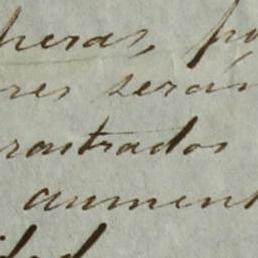 heras, po
res serán
rastrados
aument
idad